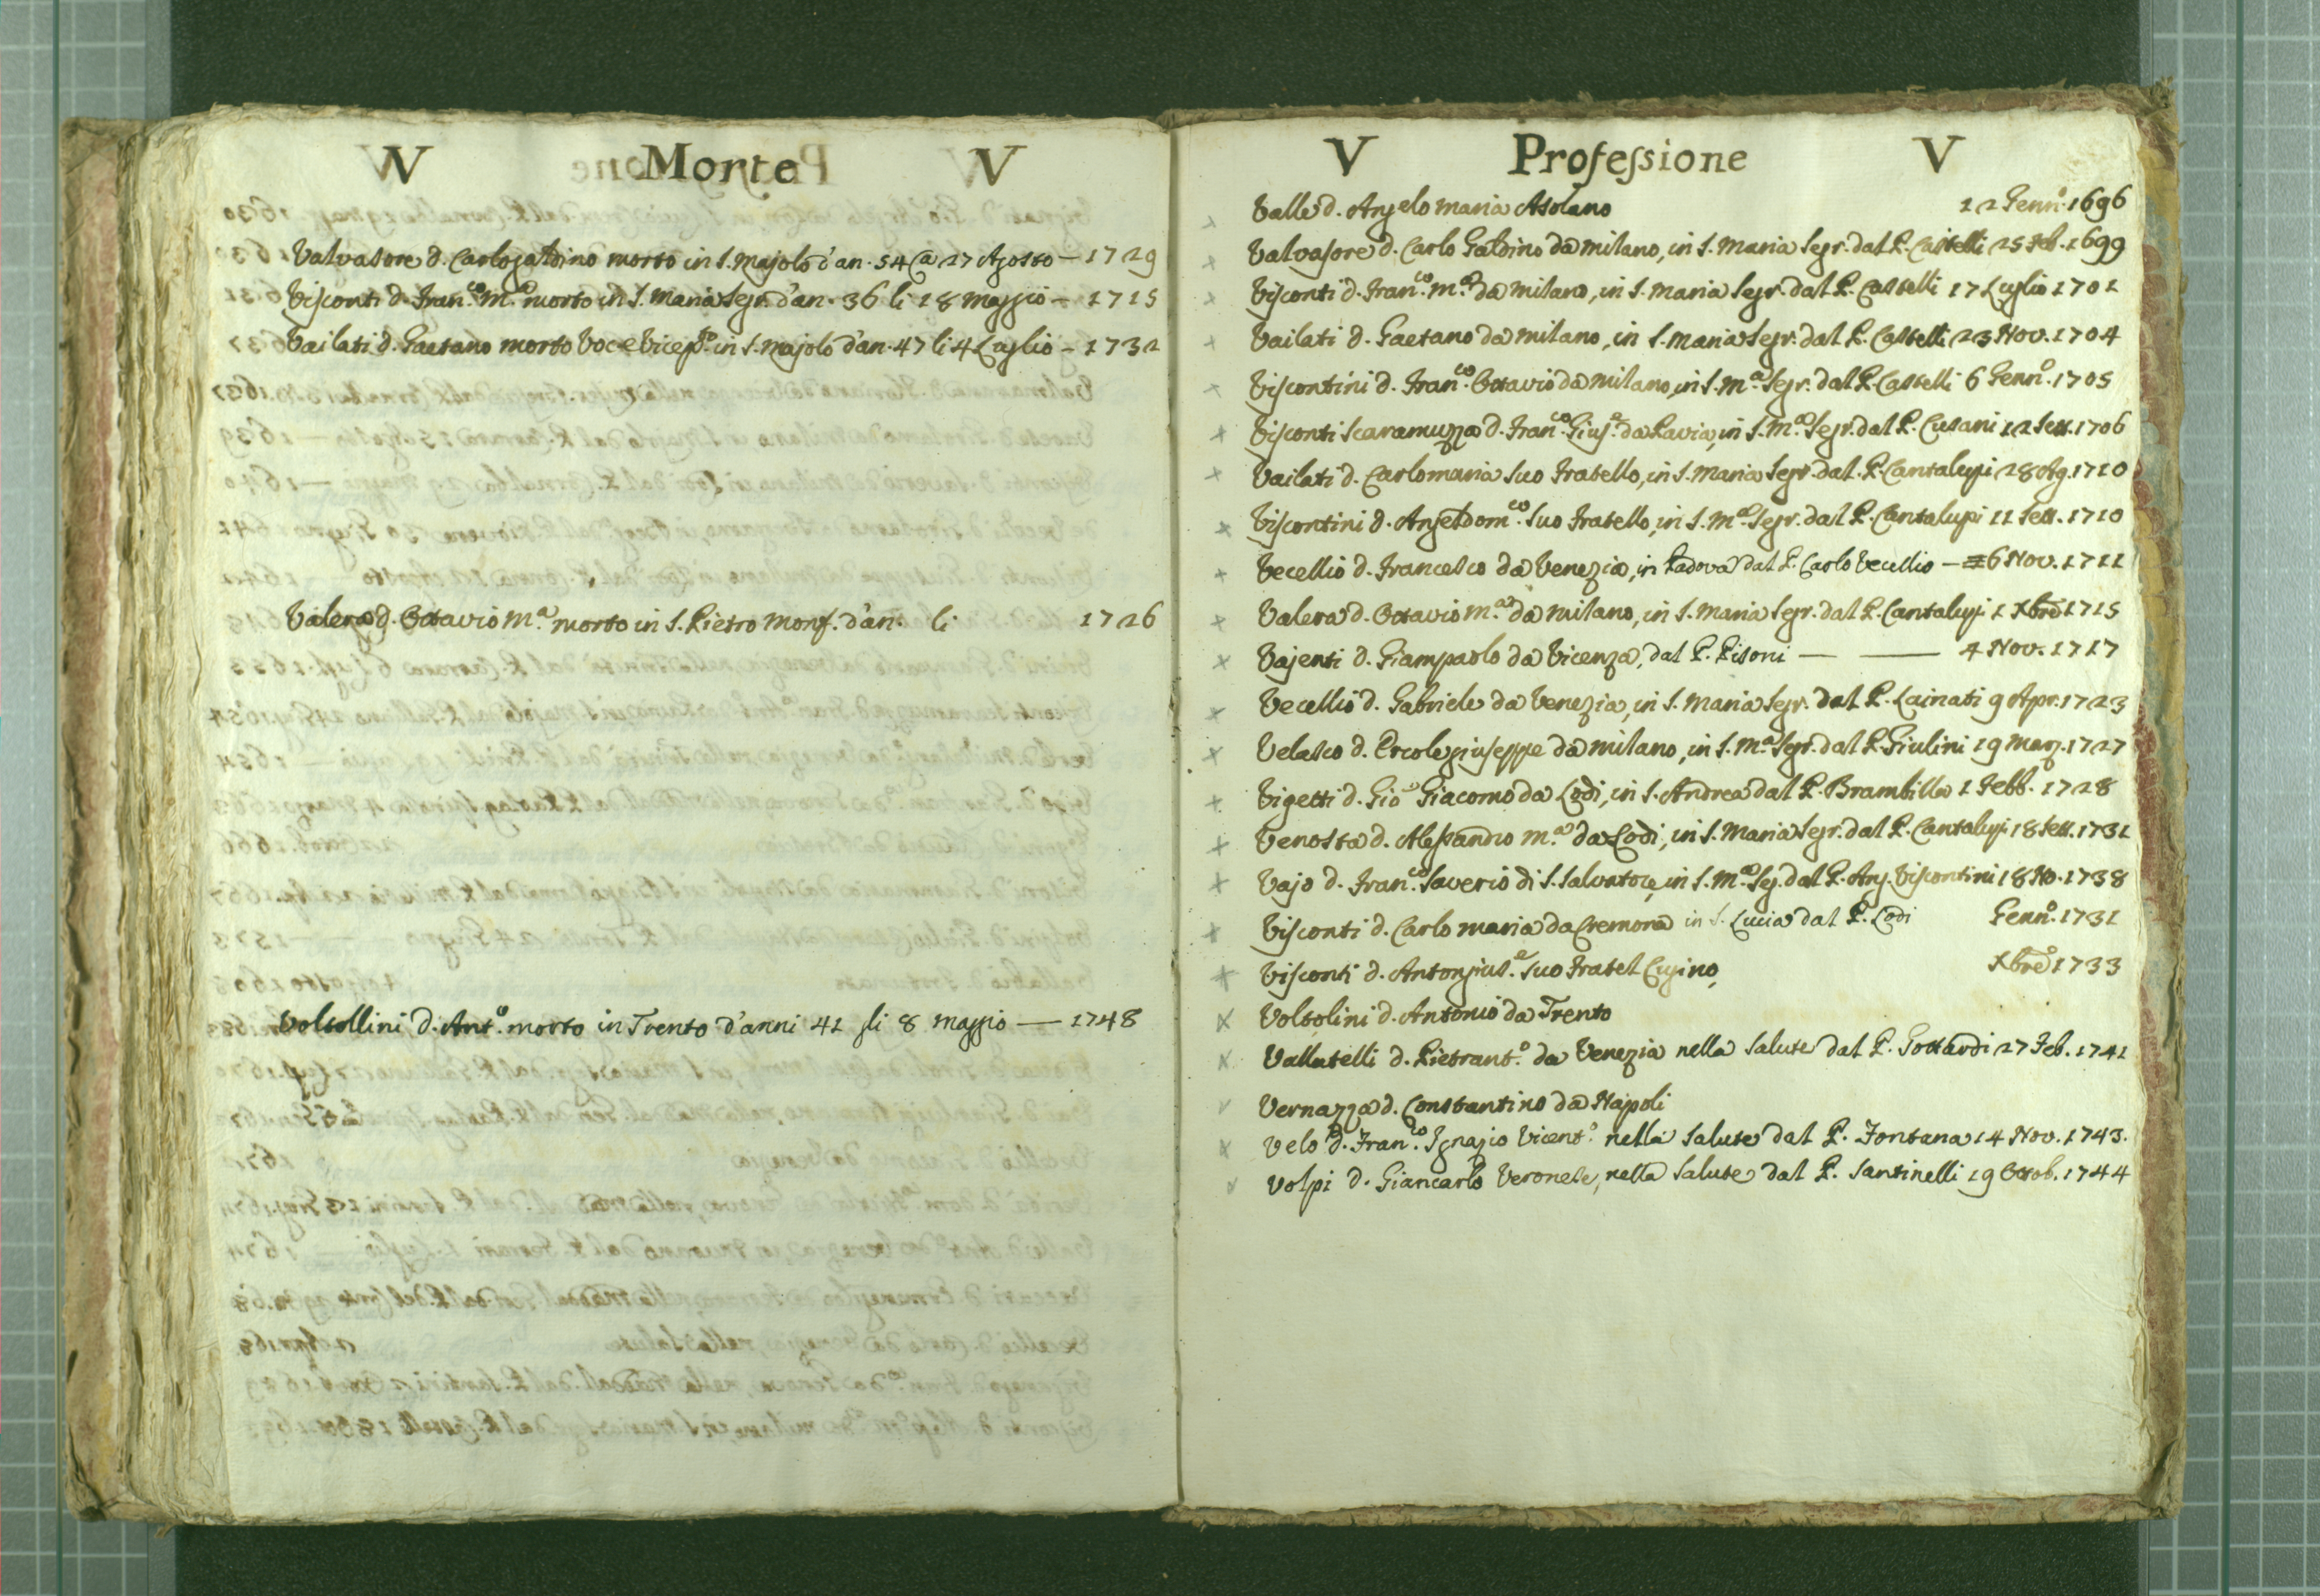 V Morte V
Valvasore d. Carlogaldino morto in S. Majolo d'an. 54 27 Agosto — 1729
Visconti d. Fran.co M.a morto in S. Maria Segr. d'an. 36 li 18 Maggio — 1715
Vailati d. Gaetano morto Vocevicep.to in S. Majolo d'an. 47 li 4 Luglio — 1732
Valera d. Ottavio M.a morto in S. Pietro Monf. d'an. li 1726
Voltollini d. Ant.o morto in Trento d'anni 41 gli 8 Maggio — 1748
V Professione V
Valle d. Angelo Maria Asolano 12 Genn.o 1696
Valvasore d. Carlo Galdino da Milano, in S. Maria Segr. dal P. Castelli 25 Feb. 1699
Visconti d. Fran.co M.a da Milano, in S. Maria Segr. dal P. Castelli 17 Luglio 1701
Vailati d. Gaetano da Milano, in S. Maria Segr. dal P. Castelli 23 Nov. 1704
Viscontini d. Fran.co Ottavio da Milano, in S. M.a Segr. dal P. Castelli 6 Genn.o 1705
Visconti Scaramuzza d. Fran.co Gius.e da Pavia, in S. M.a Segr. dal P. Cusani 12 Sett. 1706
Vailati d. Carlomaria suo Fratello, in S. Maria Segr. dal P. Cantalupi 28 Ag. 1710
Viscontini d. Angeldom.co suo Fratello, in S. M.a Segr. dal P. Cantalupi 11 Sett. 1710
Vecellio d. Francesco da Venezia, in Padova dal P. Carlo Vecellio — 6 Nov. 1711
Valera d. Ottavio M.a da Milano, in S. Maria Segr. dal P. Cantalupi 1 Xbre 1715
Vajenti d. Giampaolo da Vicenza, dal P. Pisoni — — 4 Nov. 1717
Vecellio d. Gabriele da Venezia, in S. Maria Segr. dal P. Lainati 9 Apr. 1723
Velasco d. Ercolegiuseppe da Milano, in S. M.a Segr. dal P. Giulini 19 Marz. 1727
Vigetti d. Gio Giacomo da Lodi, in S. Andrea dal P. Brambilla 1 Febb.o 1728
Venosta d. Alessandro M.a da Lodi, in S. Maria Segr. dal P. Cantalupi 18 Sett. 1731
Vajo d. Fran.co Saverio di S. Salvatore, in S. M.a Seg. dal P. Ang. Viscontini 18 No. 1738
Visconti d. Carlo Maria da Cremona in S. Lucia dal P. Lodi Genn.o 1731
Visconti d. Antongius.e suo Fratel Cugino, Xbre 1733
Voltolini d. Antonio da Trento
Vallatelli d. Pietrant.o da Venezia nella Salute dal P. Gottardi 27 Feb. 1741
Vernazza d. Constantino da Napoli
Velo d. Fran.co Ignazio Vicent.o nella Salute dal P. Fontana 14 Nov. 1743.
Volpi d. Giancarlo Veronese, nella Salute dal P. Santinelli 19 Ottob. 1744